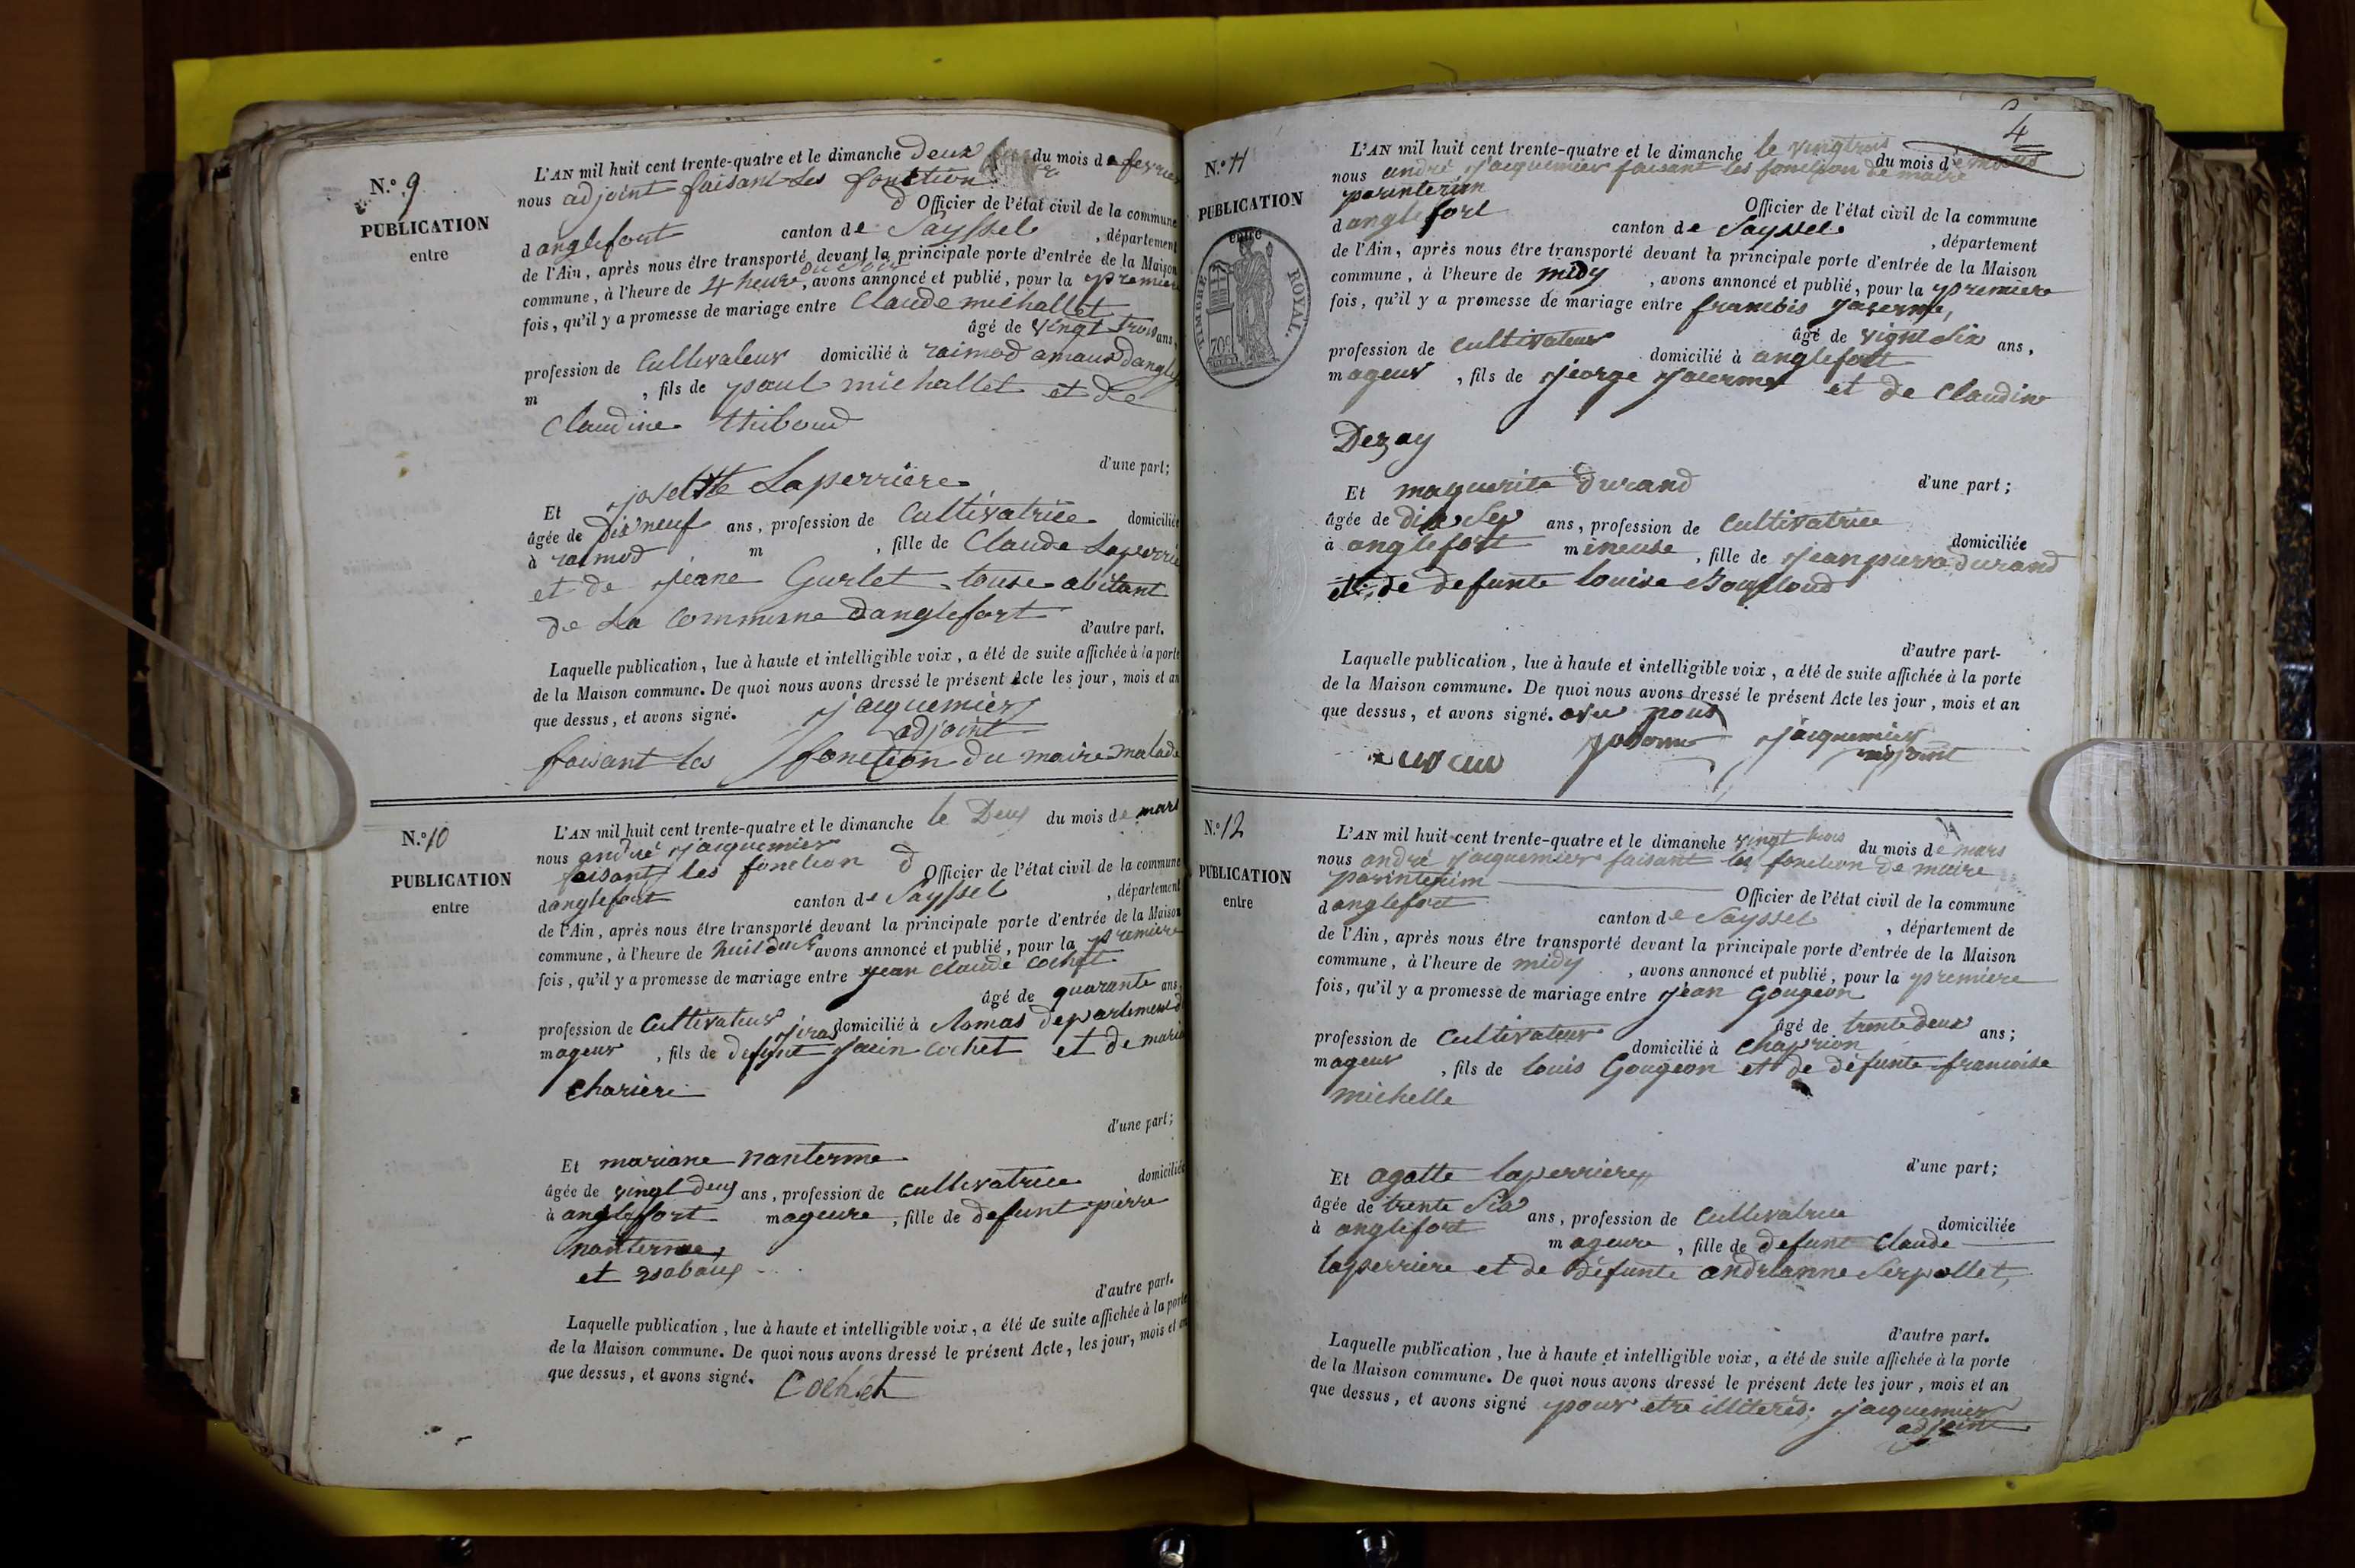 N.º 9
PUBLICATION
entre
L'AN mil huit cent trente-quatre et le dimanche Deux du mois de fevrier
nous adjoint faisant les fonction
d Officier de l'état civil de la commune
d anglefort canton de Sayssel , département
de l'Ain, après nous être transporté devant la principale porte d'entrée de la Maison
commune, à l'heure de 4 heure du soir, avons annoncé et publié, pour la premiere
fois, qu'il y a promesse de mariage entre Claude michallet
âgé de vingt trois ans,
profession de Cultivateur domicilié à raimod
m , fils de paul michallet et de
Claudine thiboud
d'une part;
Et josette Laperrière
âgée de dis neuf ans, profession de Cultivatrice domiciliée
à raimod m , fille de Claude Laperriè
et de jeane Gurlet touse abitant
de La Commune danglefort
d'autre part.
Laquelle publication, lue à haute et intelligible voix, a été de suite affichée à la porte
de la Maison commune. De quoi nous avons dressé le présent Acte les jour, mois et an
que dessus, et avons signé. jacquemier
adjoint
faisant les fonction du maire malade
N.º 10
PUBLICATION
entre
L'AN mil huit cent trente-quatre et le dimanche le Deux du mois de mars
nous andré jacquemier
faisant les fonction d Officier de l'état civil de la commune
danglefort canton de Sayssel , département
de l'Ain, après nous être transporté devant la principale porte d'entrée de la Maison
commune, à l'heure de avons annoncé et publié, pour la premiere
fois, qu'il y a promesse de mariage entre jean claude cochet
âgé de quarante ans,
profession de Cultivateur domicilié à departement d
mageur , fils de defunt cochet et de marie
Charière
d'une part;
Et mariane nanterme
âgée de vingt deux ans, profession de cultivatrice domiciliée
à anglefort mageure , fille de defunt pierre
nanterme,
et
d'autre part.
Laquelle publication, lue à haute et intelligible voix, a été de suite affichée à la porte
de la Maison commune. De quoi nous avons dressé le présent Acte, les jour, mois et an
que dessus, et avons signé. Cochet
4
N.º 11
PUBLICATION
entre
TIMBRE ROYAL.
70c
L'AN mil huit cent trente-quatre et le dimanche le vingtrois du mois de mars
nous andré jacquemier faisant les fonction de maire
parinterim
Officier de l'état civil de la commune
d anglefort canton de Sayssel , département
de l'Ain, après nous être transporté devant la principale porte d'entrée de la Maison
commune, à l'heure de midy , avons annoncé et publié, pour la premiere
fois, qu'il y a promesse de mariage entre
âgé de vignt six ans,
profession de cultivateur domicilié à anglefort
mageur , fils de jeorge et de Claudine
Dezay
d'une part;
Et maguerite Durand
âgée de dix sep ans, profession de cultivatrice domiciliée
à anglefort mineuse , fille de jean pierre durand
et de defunte louise
d'autre part-
Laquelle publication, lue à haute et intelligible voix, a été de suite affichée à la porte
de la Maison commune. De quoi nous avons dressé le présent Acte les jour, mois et an
que dessus, et avons signé. nous
jacquemier
adjoint
N.º 12
PUBLICATION
entre
L'AN mil huit cent trente-quatre et le dimanche vingt trois du mois de mars
nous andré jacquemier faisant les fonction de maire
parinterim Officier de l'état civil de la commune
d anglefort canton de Sayssel , département de
de l'Ain, après nous être transporté devant la principale porte d'entrée de la Maison
commune, à l'heure de midy , avons annoncé et publié, pour la premiere
fois, qu'il y a promesse de mariage entre jean Gougeon
âgé de trente deux ans;
profession de Cultivateur domicilié à
mageur , fils de louis Gougeon et de défunte francoise
michelle
d'une part;
Et agatte laperriere
âgée de trente six ans, profession de Cultivatrice domiciliée
à anglefort mageure , fille de defunt Claude
laperriere et de défunte andrianne Serpollet,
d'autre part.
Laquelle publication, lue à haute et intelligible voix, a été de suite affichée à la porte
de la Maison commune. De quoi nous avons dressé le présent Acte les jour, mois et an
que dessus, et avons signé pour etre illiterés; jacquemier
adjoint